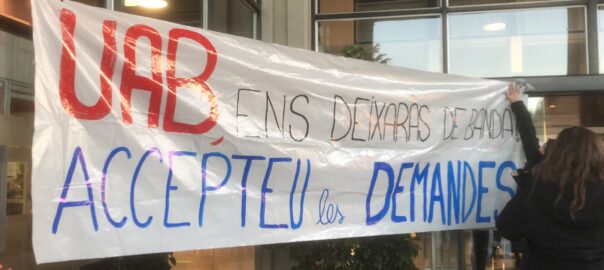 UAB, ENS DEIXARÀS DE BANDA?
ACCEPTEU les DEMANDES